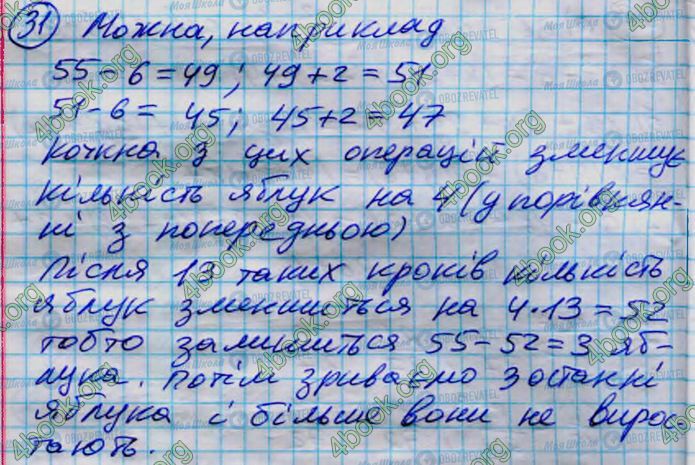 31 Можна, наприклад
55-6=49; 49+2=51
51-6= 45; 45+2=47
Кожна з цих операцій зменшує
кількість яблук на 4 (у порівнян-
ні з попередньою)
Після 13 таких кроків кількість
яблук зменшиться на 4·13=52
тобто залишиться 55-52=3 яб-
лука. Потім зриваємо 3 останні
яблука і більше вони не вирос
тають.